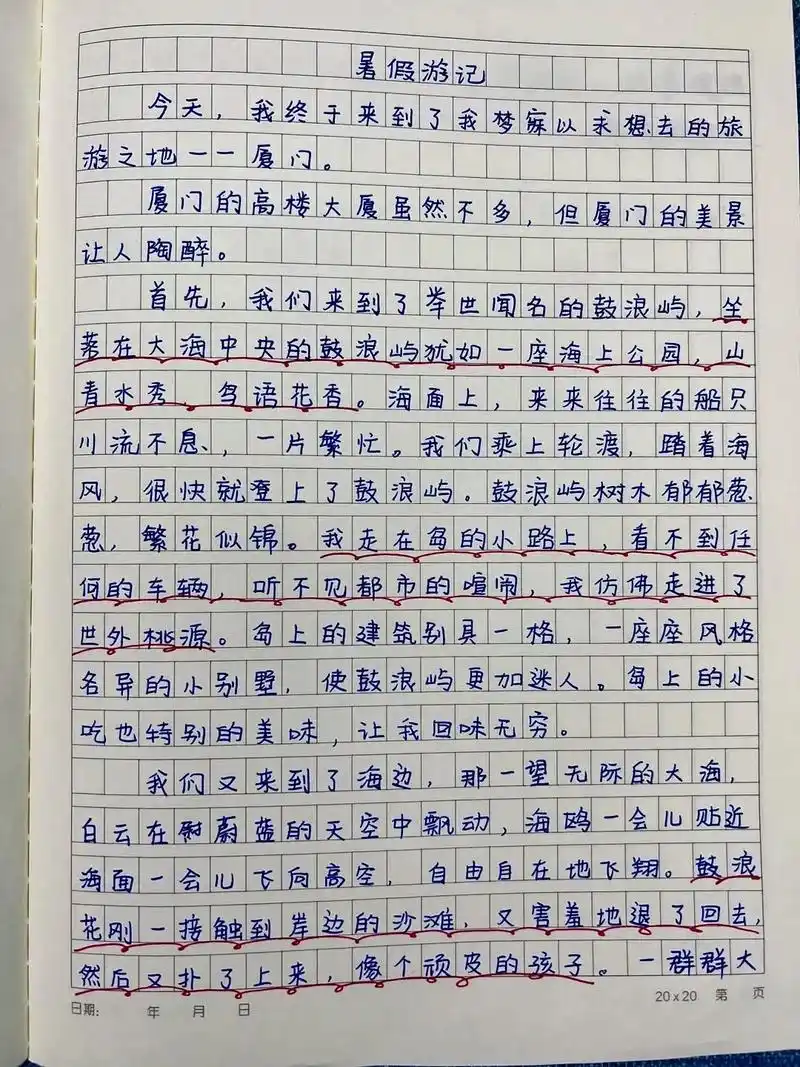 暑假游记
今天，我终于来到了我梦寐以求想去的旅
游之地一一厦门。
厦门的高楼大厦虽然不多，但厦门的美景
让人陶醉。
首先，我们来到了举世闻名的鼓浪屿，坐
落在大海中央的鼓浪屿犹如一座海上公园，山
青水秀、鸟语花香。海面上，来来往往的船只
川流不息、，一片繁忙。我们乘上轮渡，踏着海
风，很快就登上了鼓浪屿。鼓浪屿树木郁郁葱
葱，繁花似锦。我走在岛的小路上，看不到任
何的车辆，听不见都市的喧闹，我仿佛走进了
世外桃源。岛上的建筑别具一格，一座座风格
名异的小别墅，使鼓浪屿更加迷人。岛上的小
吃也特别的美味，让我回味无穷。
我们又来到了海边，那一望无际的大海，
白云在蔚蓝的天空中飘动，海鸥一会儿贴近
海面一会儿飞向高空，自由自在地飞翔。鼓浪
花刚一接触到岸边的沙滩，又害羞地退了回去，
然后又扑了上来，像个顽皮的孩子。一群群大
日期： 年 月 日
20x20 第 页